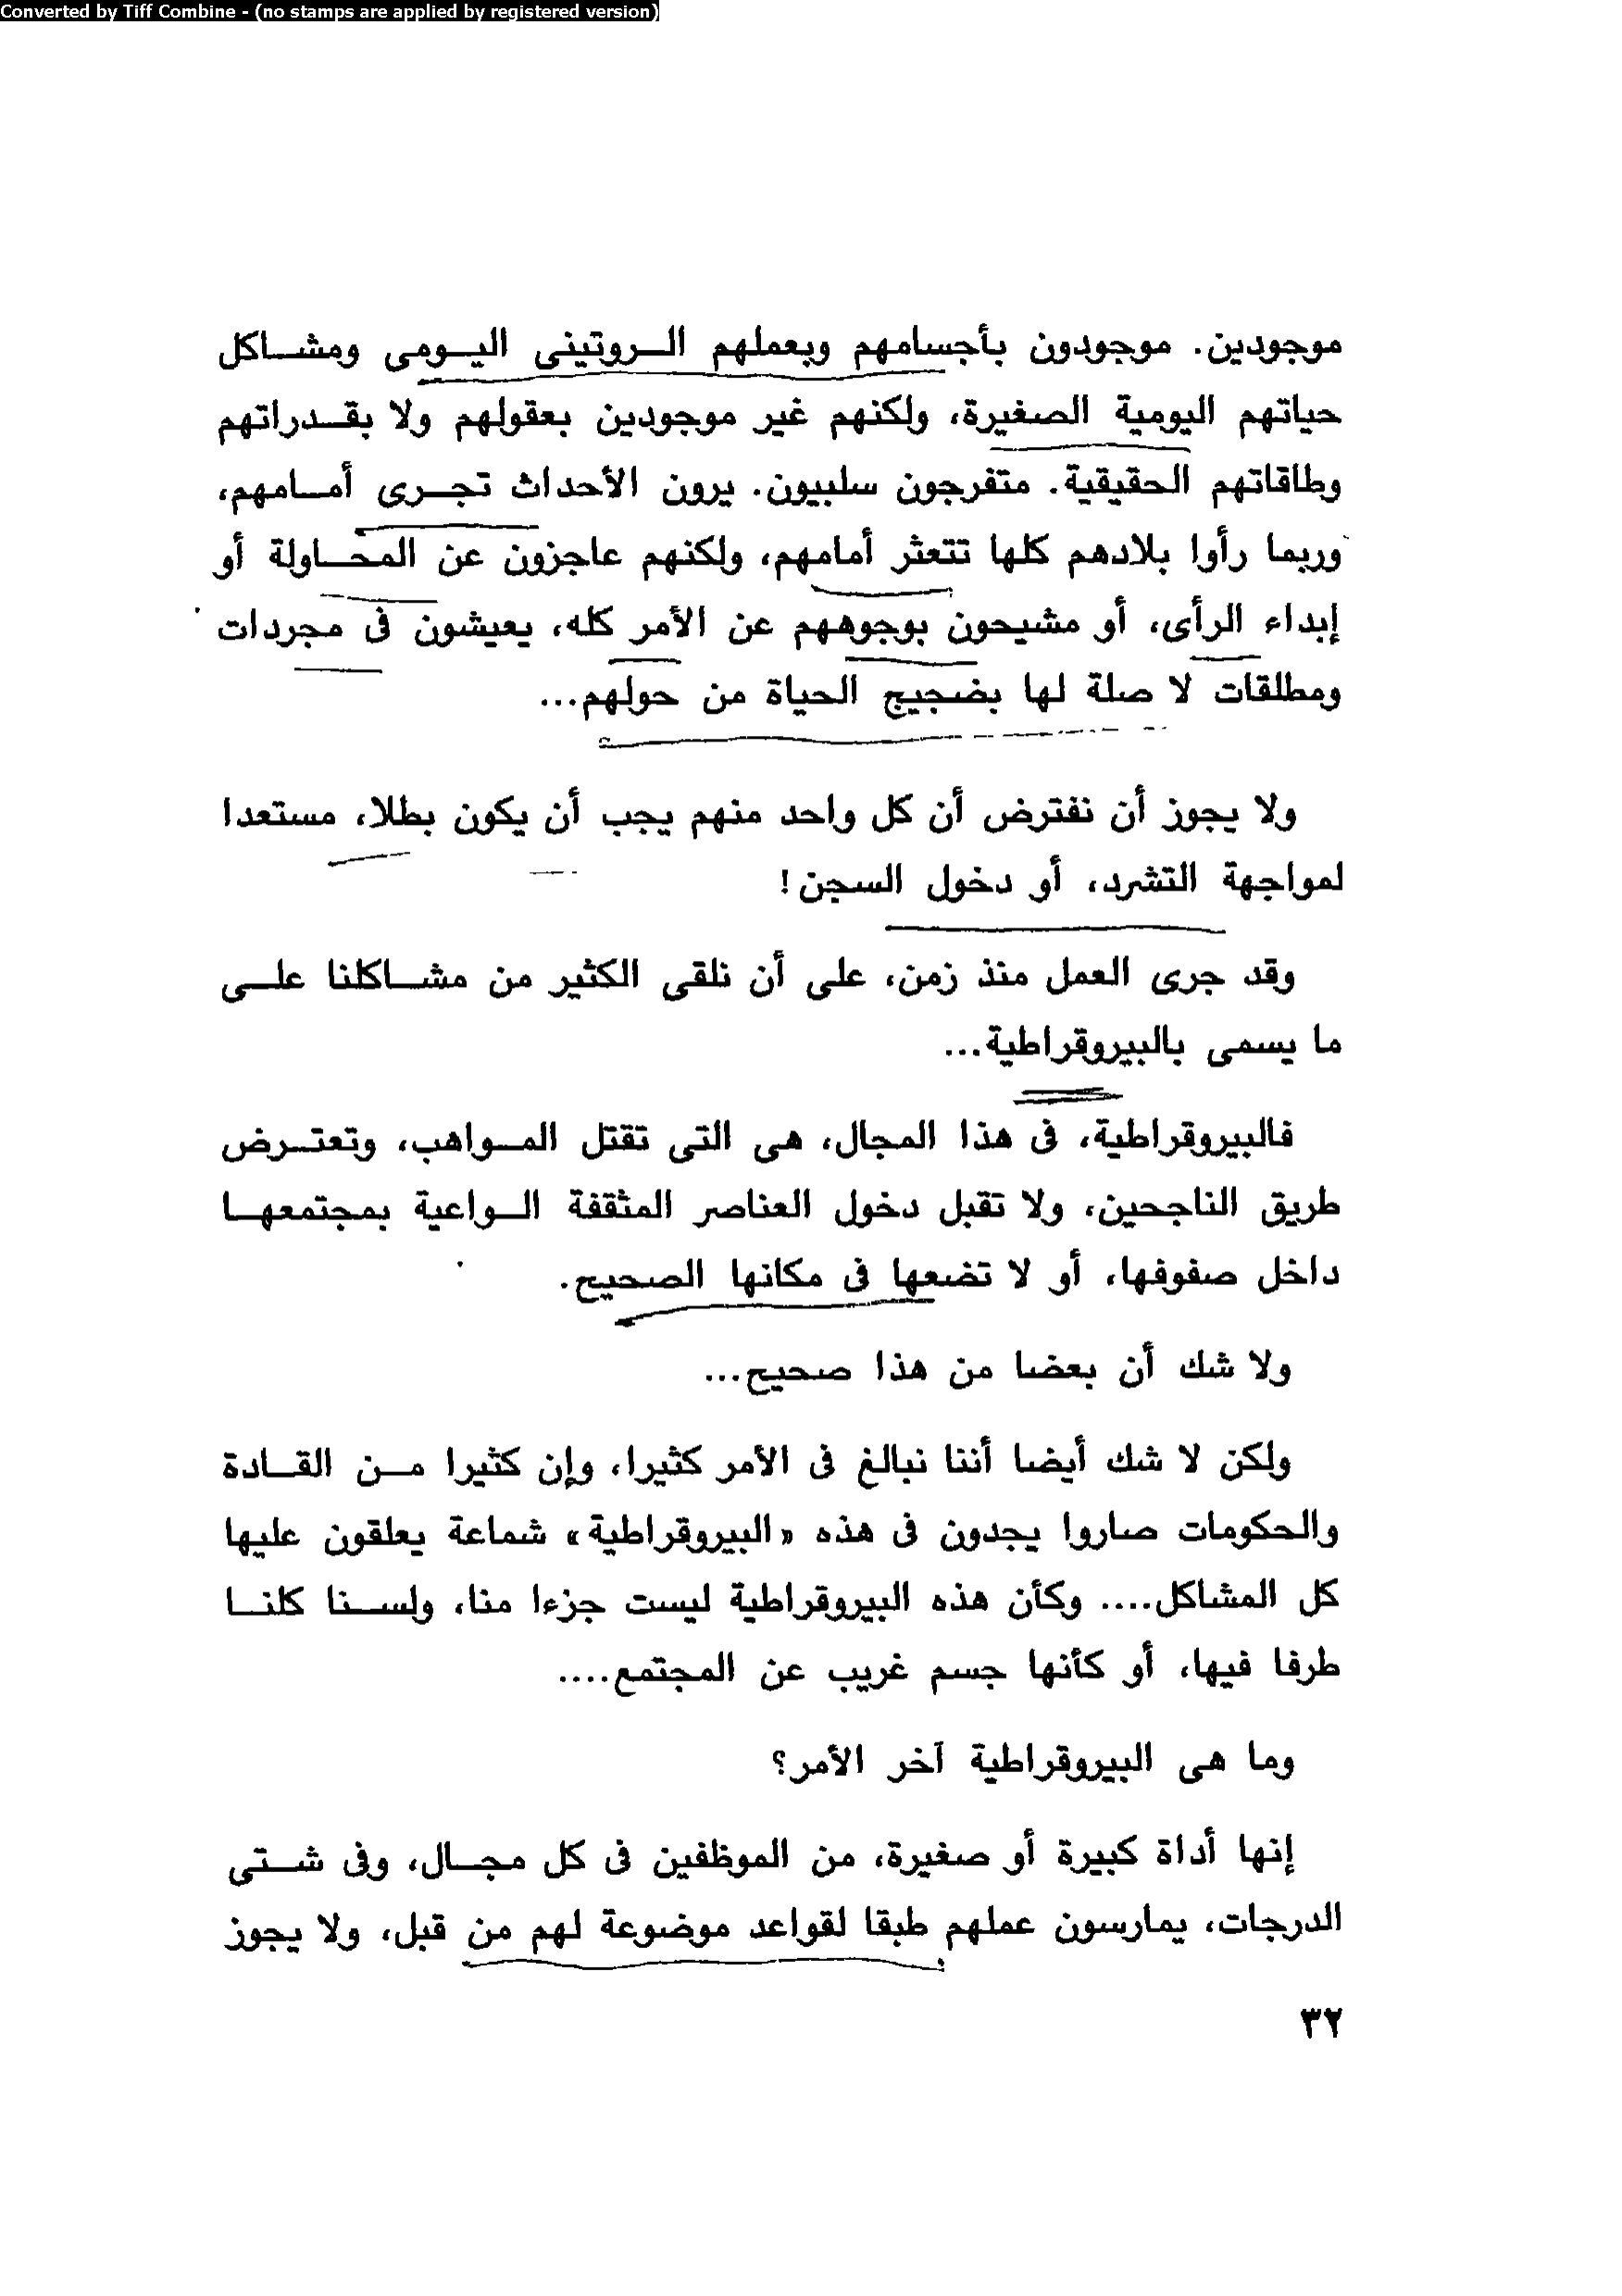 Converted by Tiff Combine - (no stamps are applied by registered version)
موجودين. موجودون بأجسامهم وبعملهم الروتينى اليومى ومشاكل
حياتهم اليومية الصغيرة، ولكنهم غير موجودين بعقولهم ولا بقدراتهم
وطاقاتهم الحقيقية. متفرجون سلبيون. يرون الأحداث تجرى أمامهم،
وربما رأوا بلادهم كلها تتعثر أمامهم، ولكنهم عاجزون عن المحاولة أو
إبداء الرأى، أو مشيحون بوجوههم عن الأمر كله، يعيشون فى مجردات
ومطلقات لا صلة لها بضجيج الحياة من حولهم...
ولا يجوز أن نفترض أن كل واحد منهم يجب أن يكون بطلا، مستعدا
لمواجهة التشرد، أو دخول السجن!
وقد جرى العمل منذ زمن، على أن نلقى الكثير من مشاكلنا على
ما يسمى بالبيروقراطية...
فالبيروقراطية، فى هذا المجال، هى التى تقتل المواهب، وتعترض
طريق الناجحين، ولا تقبل دخول العناصر المثقفة الواعية بمجتمعها
داخل صفوفها، أو لا تضعها فى مكانها الصحيح.
ولا شك أن بعضا من هذا صحيح...
ولكن لا شك أيضا أننا نبالغ فى الأمر كثيرا، وإن كثيرا من القادة
والحكومات صاروا يجدون فى هذه «البيروقراطية» شماعة يعلقون عليها
كل المشاكل.... وكأن هذه البيروقراطية ليست جزءا منا، ولسنا كلنا
طرفا فيها، أو كأنها جسم غريب عن المجتمع....
وما هى البيروقراطية آخر الأمر؟
إنها أداة كبيرة أو صغيرة، من الموظفين فى كل مجال، وفى شتى
الدرجات، يمارسون عملهم طبقا لقواعد موضوعة لهم من قبل، ولا يجوز
٣٢